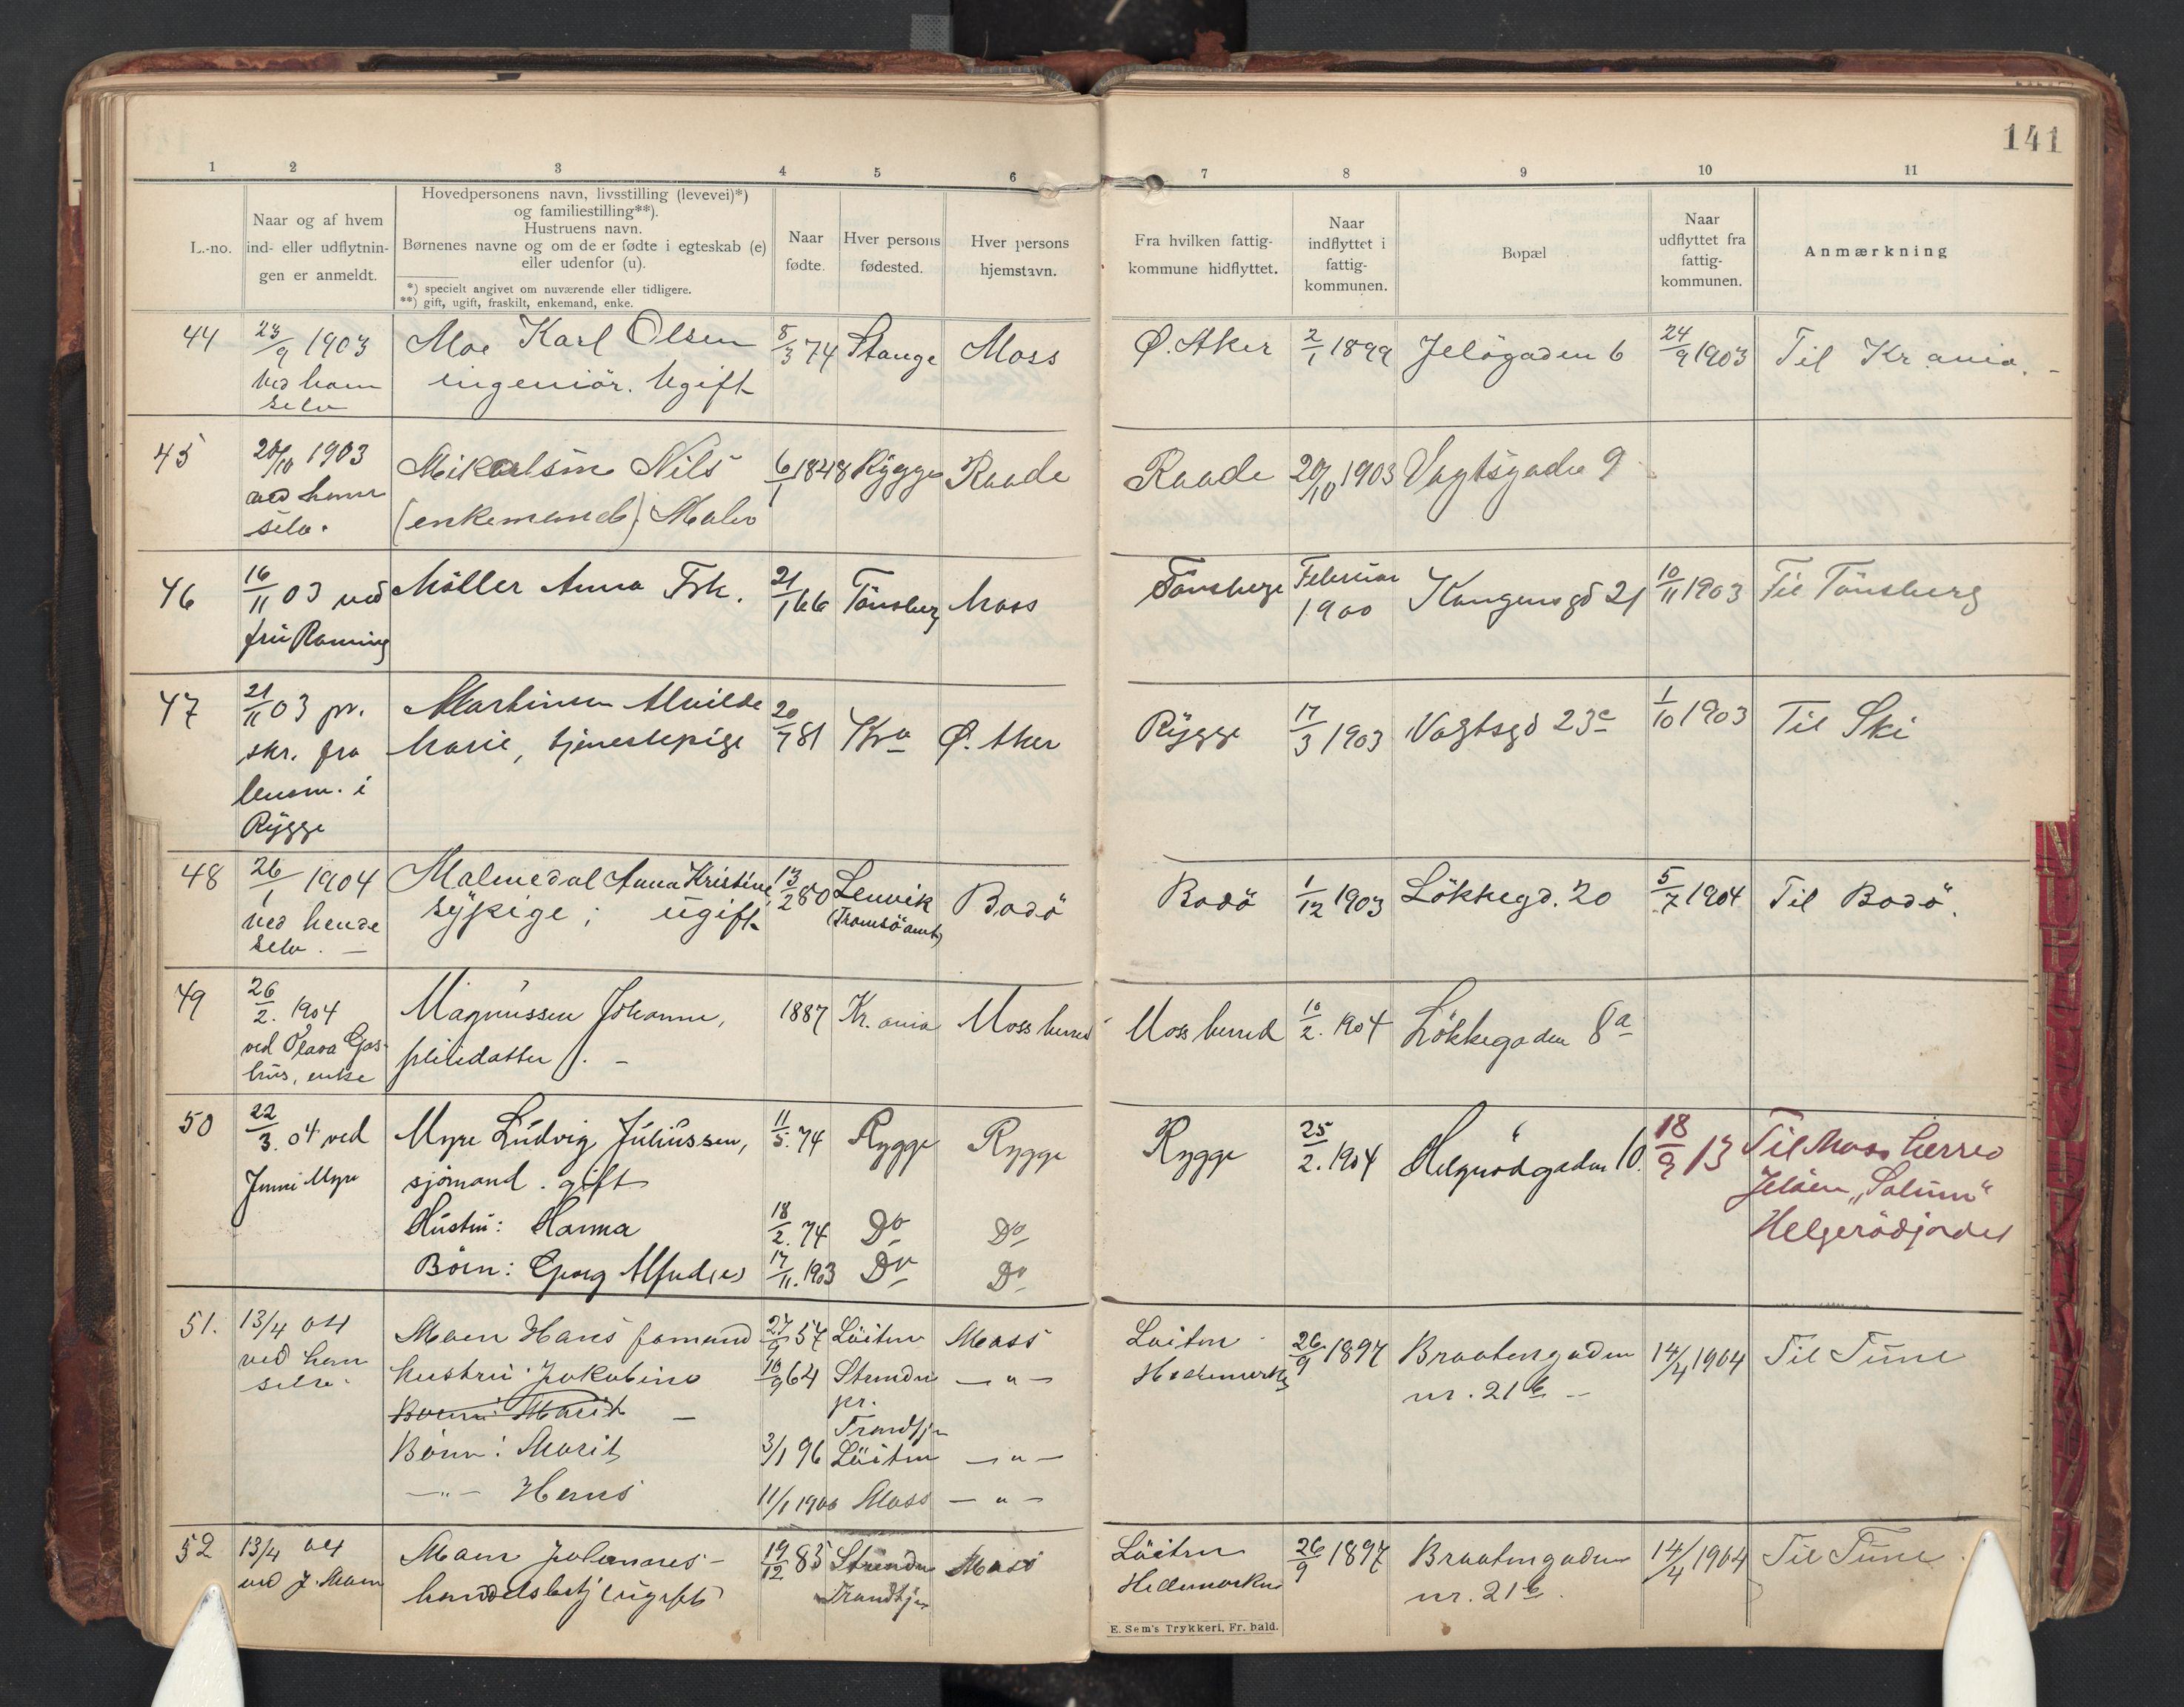 141
1 2 3 4 5 6 7 8 9 10 11
L.-no.
Naar og af hvem
ind- eller udflytnin-
gen er anmeldt.
Hovedpersonens navn, livsstilling (levevei)*)
og familiestilling**).
Hustruens navn.
Børnenes navne og om de er fødte i egteskab (e)
eller udenfor (u).
*) specielt angivet om nuværende eller tidligere.
**) gift, ugift, fraskilt, enkemand, enke.
Naar
fødte.
Hver persons
fødested.
Hver persons
hjemstavn.
Fra hvilken fattig-
kommune hidflyttet.
Naar
indflyttet i
fattig-
kommunen.
Bopæl
Naar
udflyttet fra
fattig-
kommunen.
Anmærkning
44 23/9 1903 Moe Karl Olsen 8/3 74 Stange Moss Ø. Aker 2/1 1899 Jelögaden 6 24/9 1903 Til Kr.ania. -
ved ham ingeniör. Ugift
selv
45 20/10 1903 Mikaelsen Nils 6/1 1848 Rygge Raade Raade 20/10 1903 Vogtsgaden 9
ved ham (enkemand) Maler
selv.
46 16/11 03 ved Möller Anna Frk. 21/1 66 Tönsberg Moss Tönsberg Februar Kongensgd 21 10/11 1903 Til Tönsberg
fru Ranning 1900
47 21/11 03 pr. Martinsen Alvilde 20/7 81 Kra Ø. Aker Rygge 17/3 1903 Vogtsgd 23c 1/10 1903 Til Ski
skr. fra Marie, tjenestepige
lensm. i
Rygge
48 26/1 1904 Malmedal Anna Kristine, 13/2 80 Lenvik Bodö Bodö 1/12 1903 Lökkegd. 20 5/7 1904 Til Bodö.
ved hende sypige; ugift. (Tromsö amt)
selv. -
49 26/2. 1904 Magnussen Johanne, 1887 Kr.ania Moss herred Moss herred 10/2. 1904 Lökkegaden 8a
ved Olava Gjos- pleiedatter. -
hus, enke
50 22/3. 04 ved Myre Ludvig Juliussen, 11/5. 74 Rygge Rygge Rygge 25/2. 1904 Helgerödgaden 10. 18/9 13 Til Moss herred
Jenni Myre sjömand. gift Jelöen, "Solum"
Hustru: Hanna 18/2. 74 Do Do Helgerödjordet
Börn: Georg Alfred (e) 17/11. 1903 Do Do
51. 13/4 04 Moen Hans formand 27/9 57 Löiten Moss Löiten 26/9 1897 Braatengaden 14/4 1904 Til Tune
ved ham Hustru: Jakobine 10/9 64 Strinden — " — Hedemarken nr. 21b -
selv. pr.
Börn: Marit - Trondhjem
Börn: Marit 3/1 96 Löiten — " —
— " — Hans 11/1 1900 Moss — " —
52 13/4 04 Moen Johannes - 19/12 85 Strinden Moss Löiten 26/9 1897 Braatengaden 14/4 1904 Til Tune
ved J. Moen handelsbetj. ugift Trondhjem Hedemarken nr. 21b.
E. Sem's Trykkeri, Fr. hald.